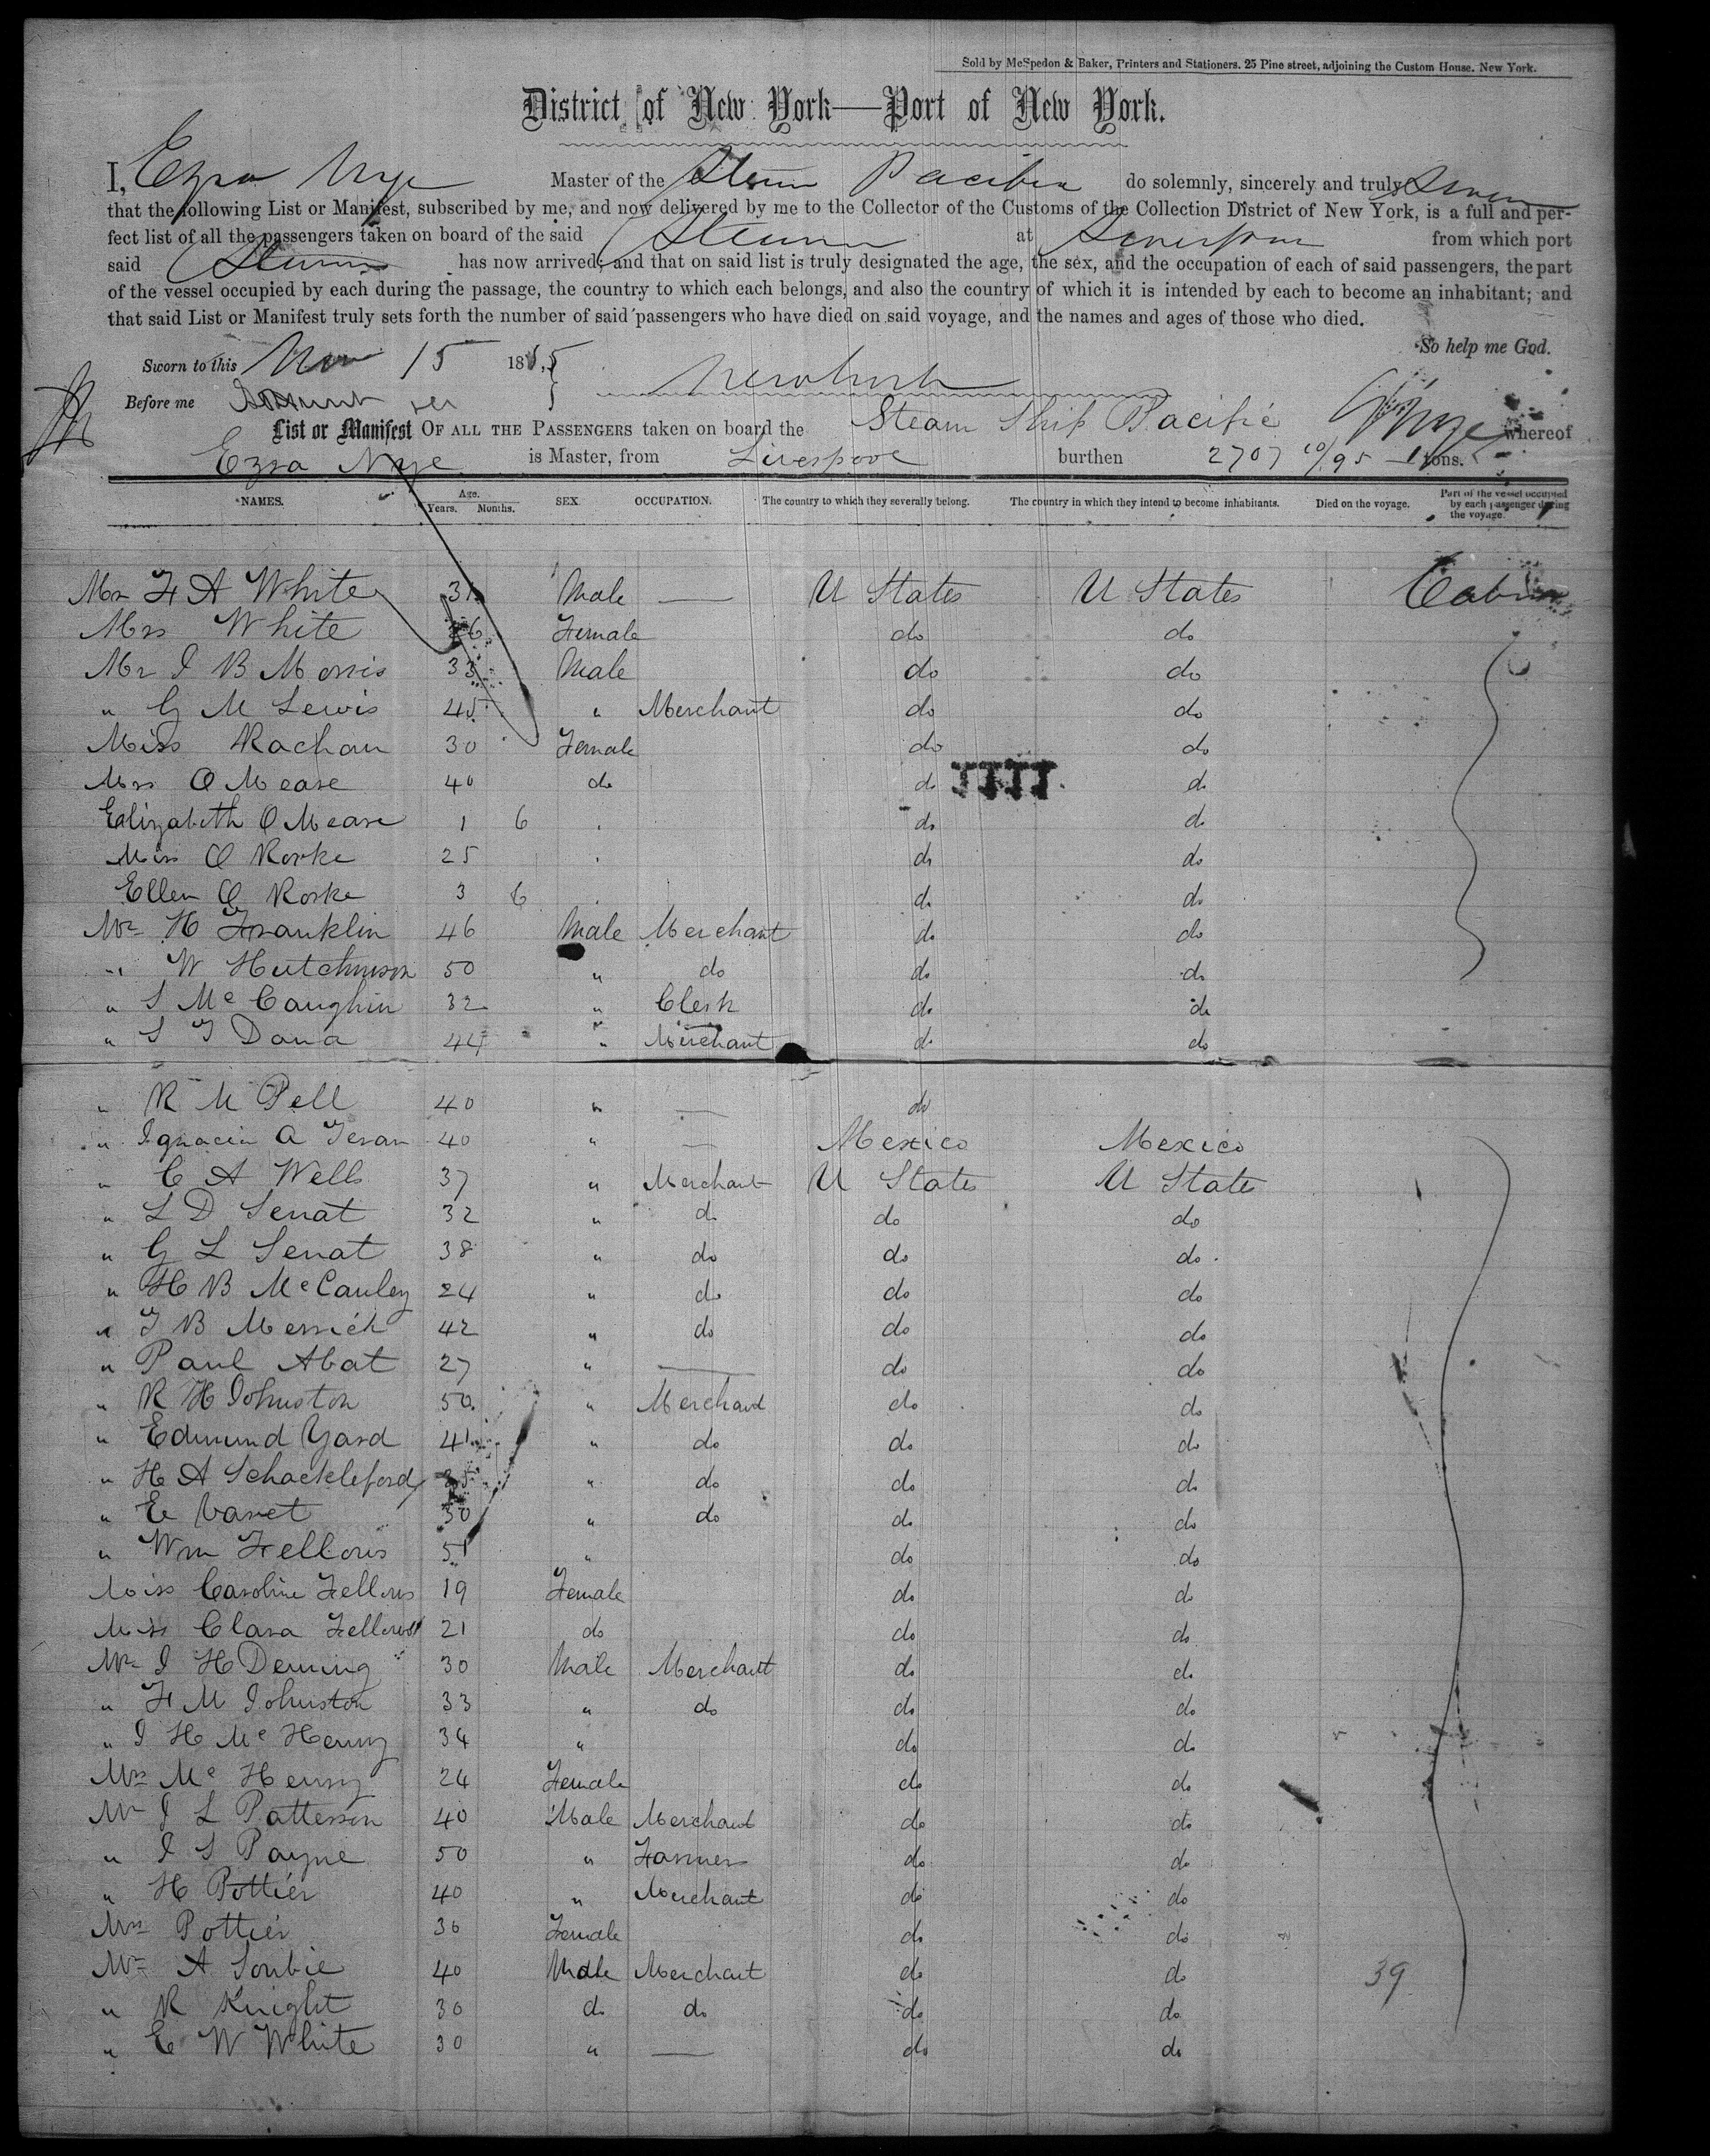 Sold by McSpedon & Baker, Printers and Stationers. 25 Pine street, adjoining the Custom House. New York.
District of New York—Port of New York.
I, Ezra Nye Master of the Steam Pacific do solemnly, sincerely and truly Swear
that the following List or Manifest, subscribed by me, and now delivered by me to the Collector of the Customs of the Collection District of New York, is a full and per-
fect list of all the passengers taken on board of the said Steamer at Liverpool from which port
said Steamer has now arrived; and that on said list is truly designated the age, the sex, and the occupation of each of said passengers, the part
of the vessel occupied by each during the passage, the country to which each belongs, and also the country of which it is intended by each to become an inhabitant; and
that said List or Manifest truly sets forth the number of said passengers who have died on said voyage, and the names and ages of those who died.
So help me God.
Sworn to this Nov 15 1855
Before me
List or Manifest OF ALL THE PASSENGERS taken on board the Steam Ship Pacific whereof
Ezra Nye is Master, from Liverpool burthen 2707 10/95 tons.
NAMES. Age. Years. Months. SEX. OCCUPATION. The country to which they severally belong. The country in which they intend to become inhabitants. Died on the voyage. Part of the vessel occupied by each passenger during the voyage.
Mr F A White 31 Male — U States U States Cabin
Mrs White 26 Female do do
Mr I B Morris 33 Male do do
" G M Lewis 45 " Merchant do do
Miss Rachau 30 Female do do
Mrs O Mease 40 do do do
Elizabeth O Mease 1 6 do do
Miss O Rorke 25 do do
Ellen O Rorke 3 6 do do
Mr H Franklin 46 Male Merchant do do
" W Hutchinson 50 " do do do
" S Mc Caughin 32 " Clerk do do
" S T Dana 44 " Merchant do do
" R M Pell 40 " — do
" Ignacio A Teran 40 " — Mexico Mexico
" C A Wells 37 " Merchant U States U States
" L D Senat 32 " do do do
" G L Senat 38 " do do do
" H B McCauley 24 " do do do
" T B Merrick 42 " do do do
" Paul Abat 27 " — do do
" R H Johnston 50 " Merchant do do
" Edmund Yard 41 " do do do
" H A Schackleford " do do do
" E Varet 30 " do do do
" Wm Fellows 51 " do do
Miss Caroline Fellows 19 Female do do
Miss Clara Fellows 21 do do do
Mr I H Deming 30 Male Merchant do do
" F M Johnston 33 " do do do
" I H Mc Henry 34 " do do
Mrs Mc Henry 24 Female do do
Mr I L Patterson 40 Male Merchant do do
" I S Payne 50 " Farmer do do
" H Pottier 40 " Merchant do do
Mrs Pottier 30 Female do do
Mr A Soubie 40 Male Merchant do do 39
" R Knight 30 do do do do
" E W White 30 " — do do